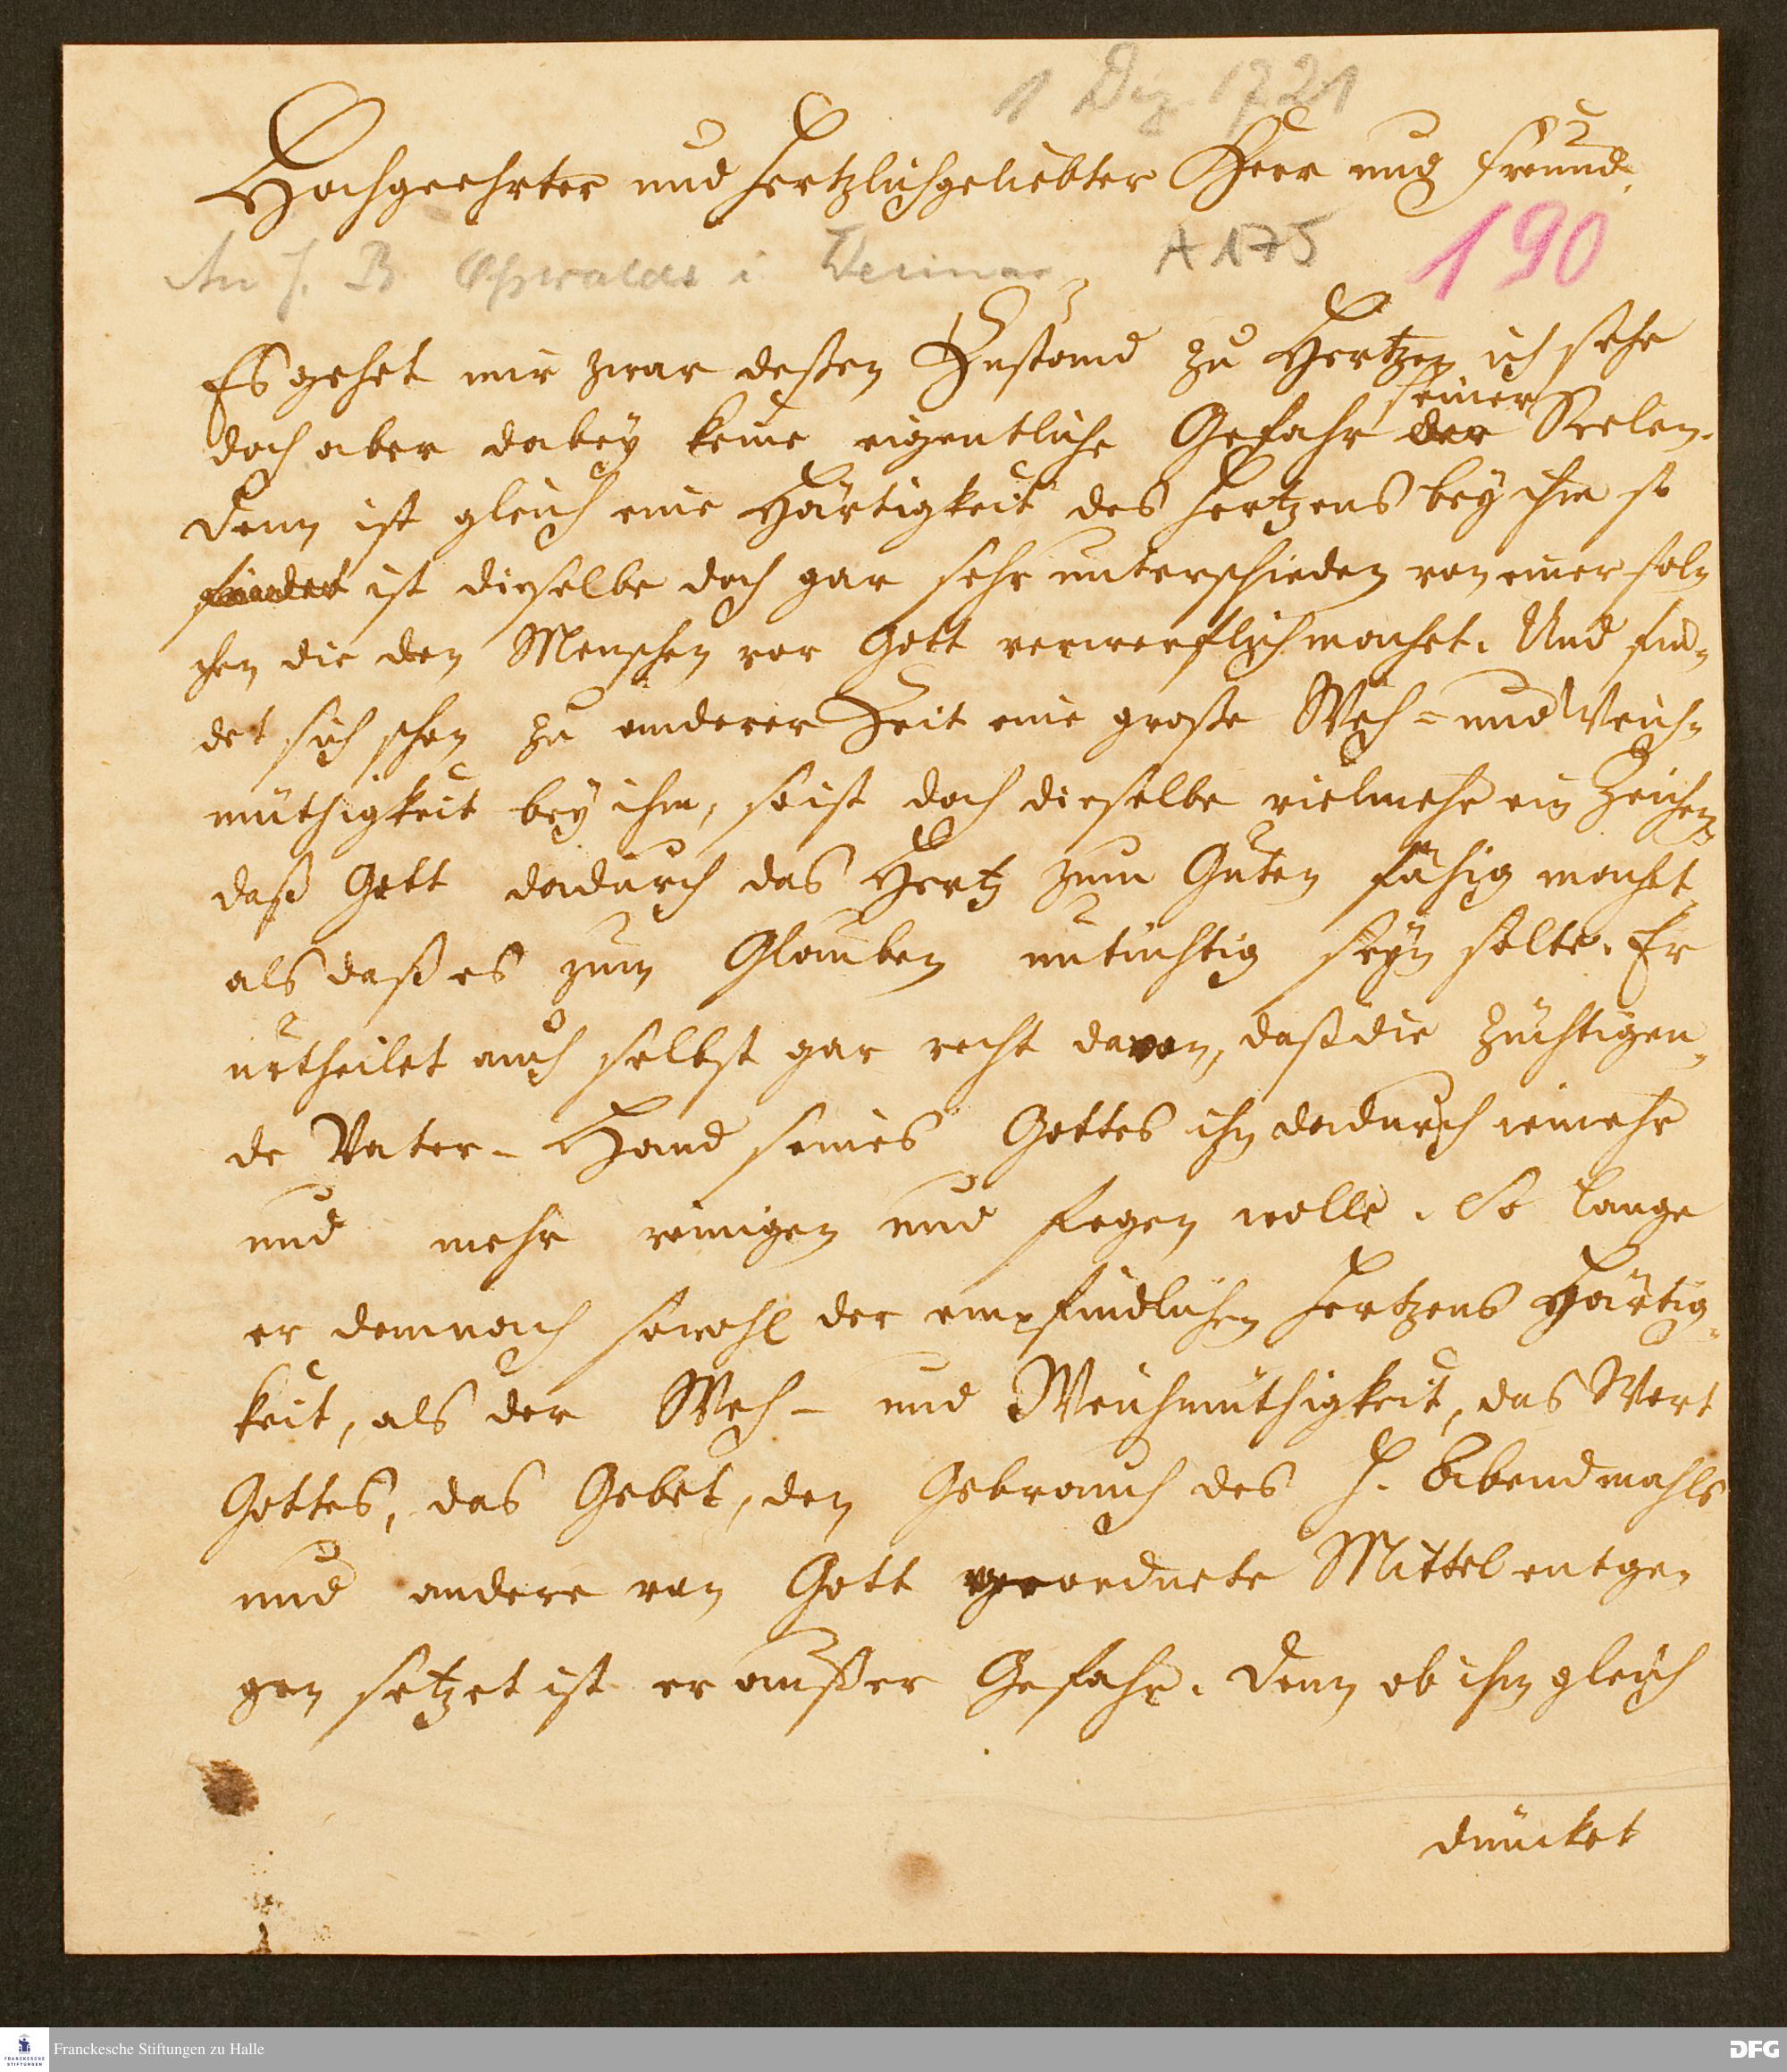 1 Dez. 1721
Hochgeehrter und hertzlichgeliebter Herr und Freund.
An J. B. Oßwald i Weimar A 175 190
Es gehet mir zwar deßen Zustand zu Hertzen ich sehe
doch aber dabey keine eigentliche Gefahr der seiner Seelen.
Denn ist gleich eine Härtigkeit des Hertzens bey ihm so
findet ist dieselbe doch gar sehr unterschieden von einer sol-
chen die den Menschen vor Gott verwerflich machet. Und fin-
det sich schon zu anderer Zeit eine große Weh- und Weich-
müthigkeit bey ihm, so ist doch dieselbe vielmehr ein Zeichen
daß Gott dadurch das Hertz zum Guten fähig machet
als daß es zum Glauben untüchtig seyn solte. Er
urtheilet auch selbst gar recht davon, daß die züchtigen-
de Vater-Hand seines Gottes ihn dadurch iemehr
und mehr reinigen und fegen wolle. So lange
er demnach sowohl der empfindlichen Hertzens Härtig-
keit, als der Weh- und Weichmüthigkeit, das Wort
Gottes, das Gebet, den Gebrauch des H. Abendmahls
und andere von Gott geordnete Mittel entge-
gen setzet ist er außer Gefahr. Denn ob ihm gleich
düncket
Franckesche Stiftungen zu Halle
FRANCKESCHE STIFTUNGEN
DFG